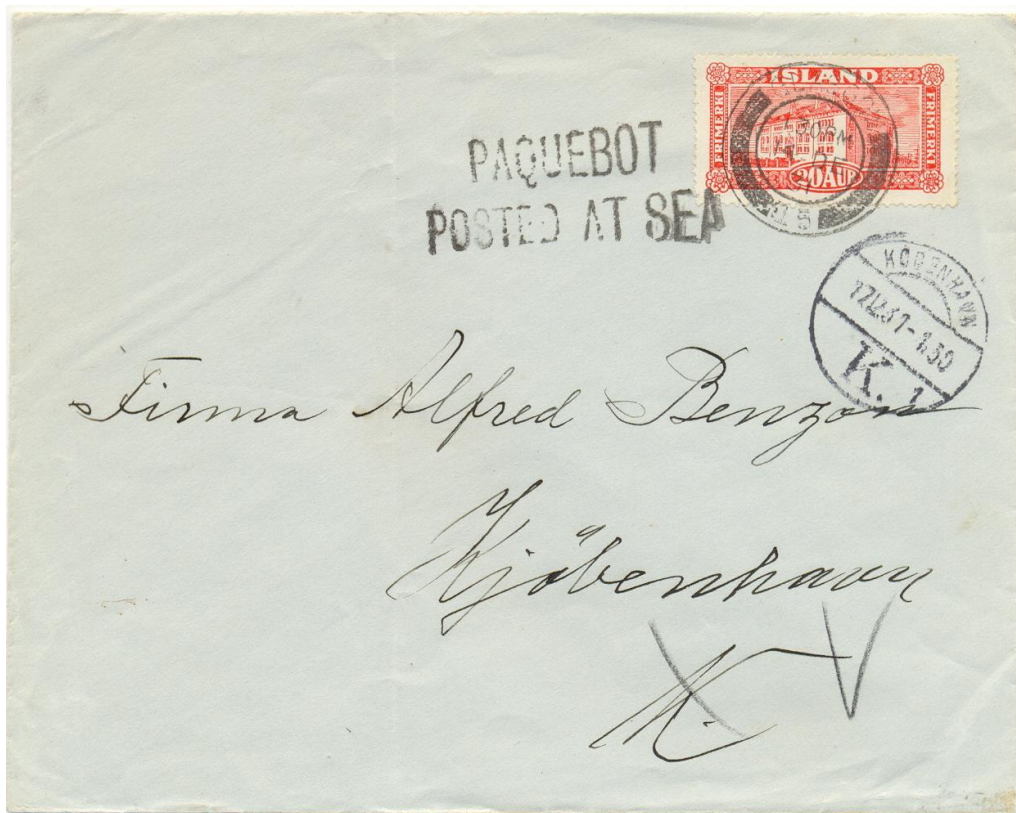 ÍSLAND
FRIMERKI
FRIMERKI
20 AUR
PAQUEBOT
POSTED AT SEA
KØBENHAVN
17.12.31-1.30
K. 1
Firma Alfred Benzon
Kjöbenhavn
K.